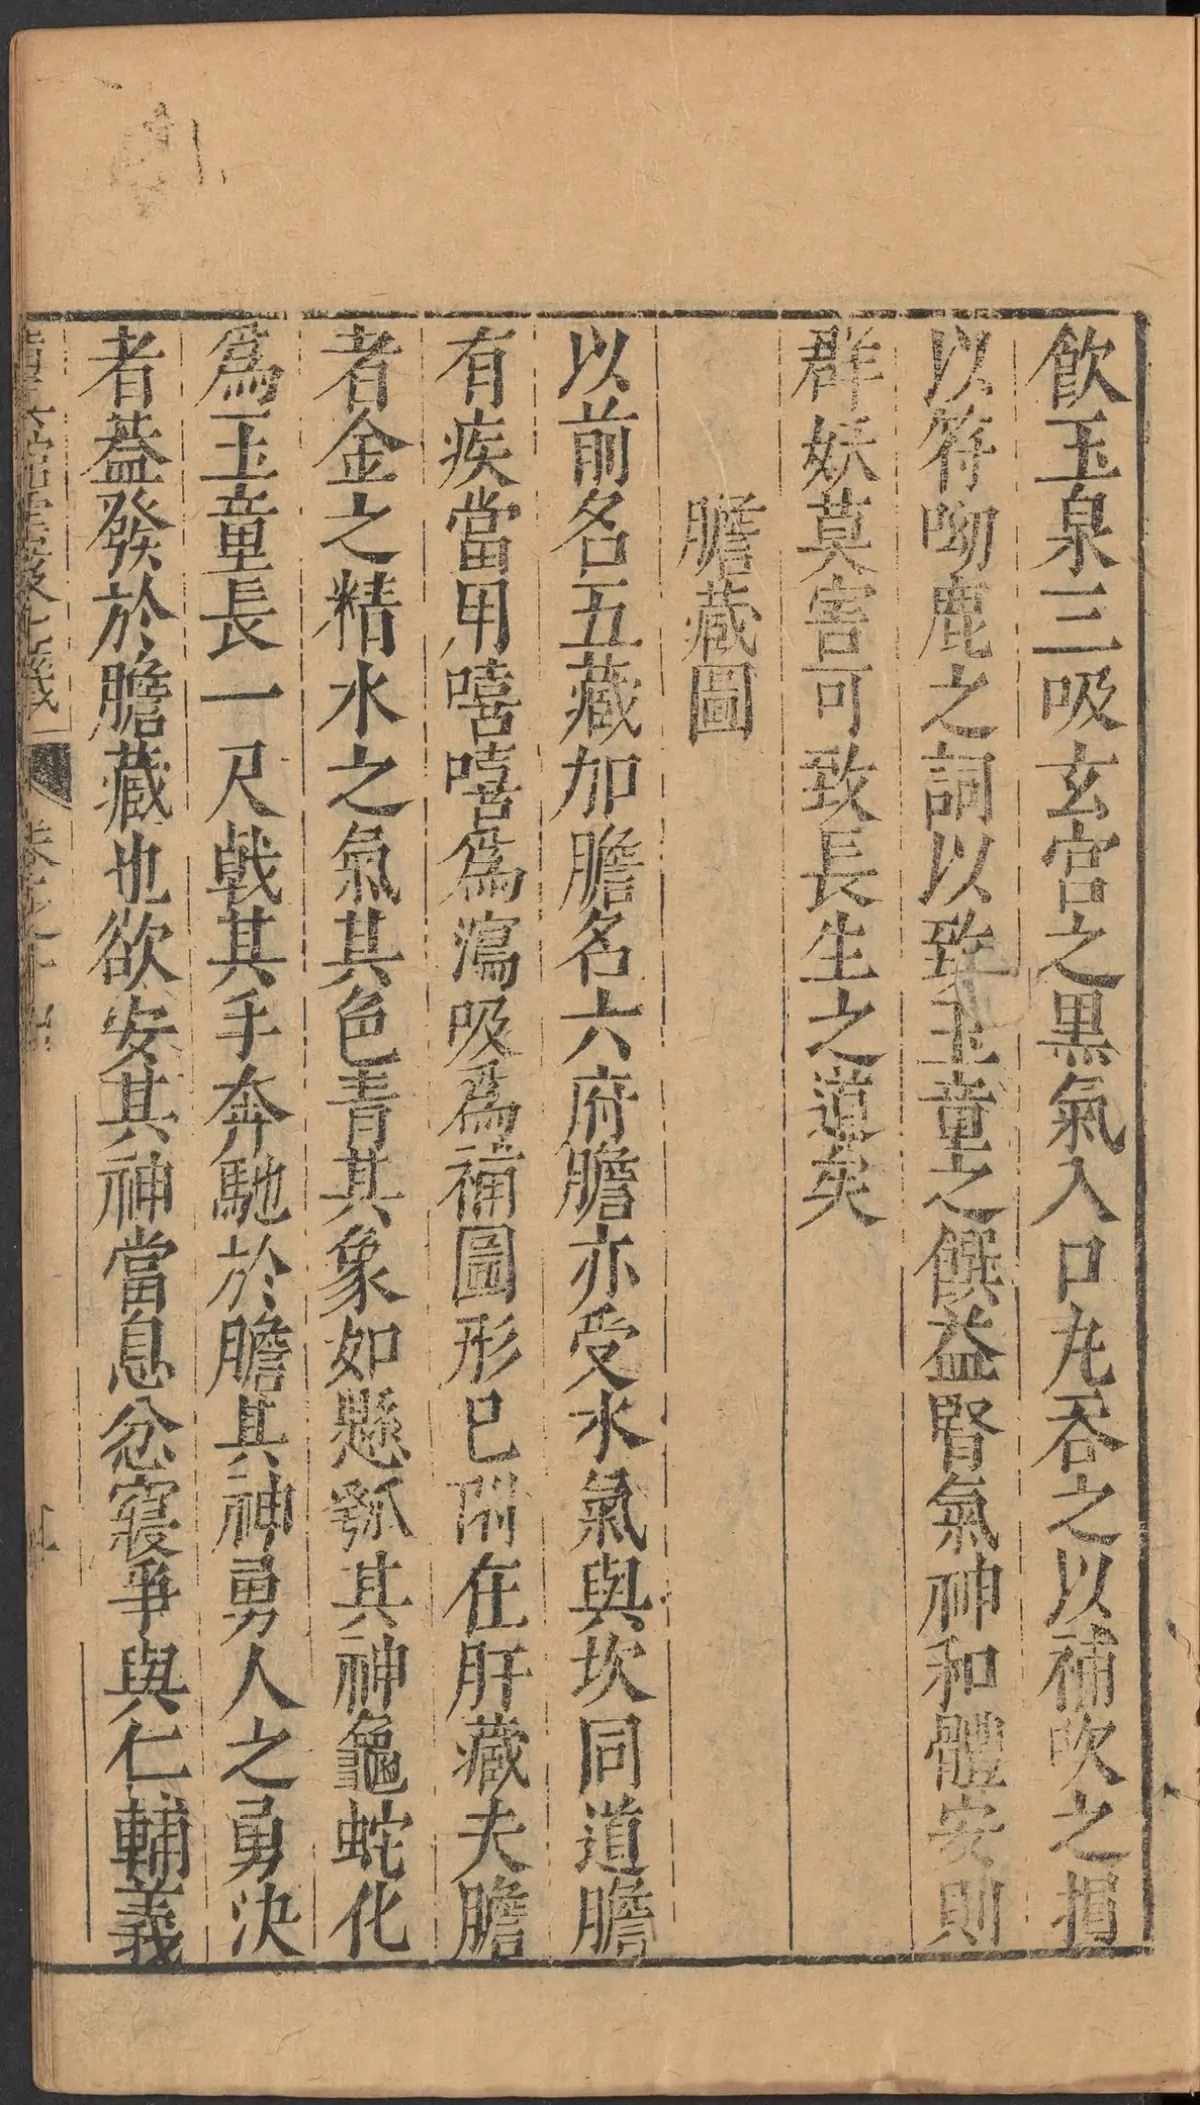 飲玉泉三吸玄宮之黒氣入口九吞之以補吹之損
以符呦鹿之詞以致玉童之饌益腎氣神和體安則
群妖莫害可致長生之道矣
膽藏圖
以前名五藏加膽名六府膽亦受水氣與坎同道膽
有疾當用嘻嘻爲瀉吸爲補圖形已附在肝藏夫膽
者金之精水之氣其色青其象如懸瓠其神龜蛇化
爲玉童長一尺戟其手奔馳於膽其神勇人之勇決
者蓋發於膽藏也欲安其神當息忿寢爭與仁輔義